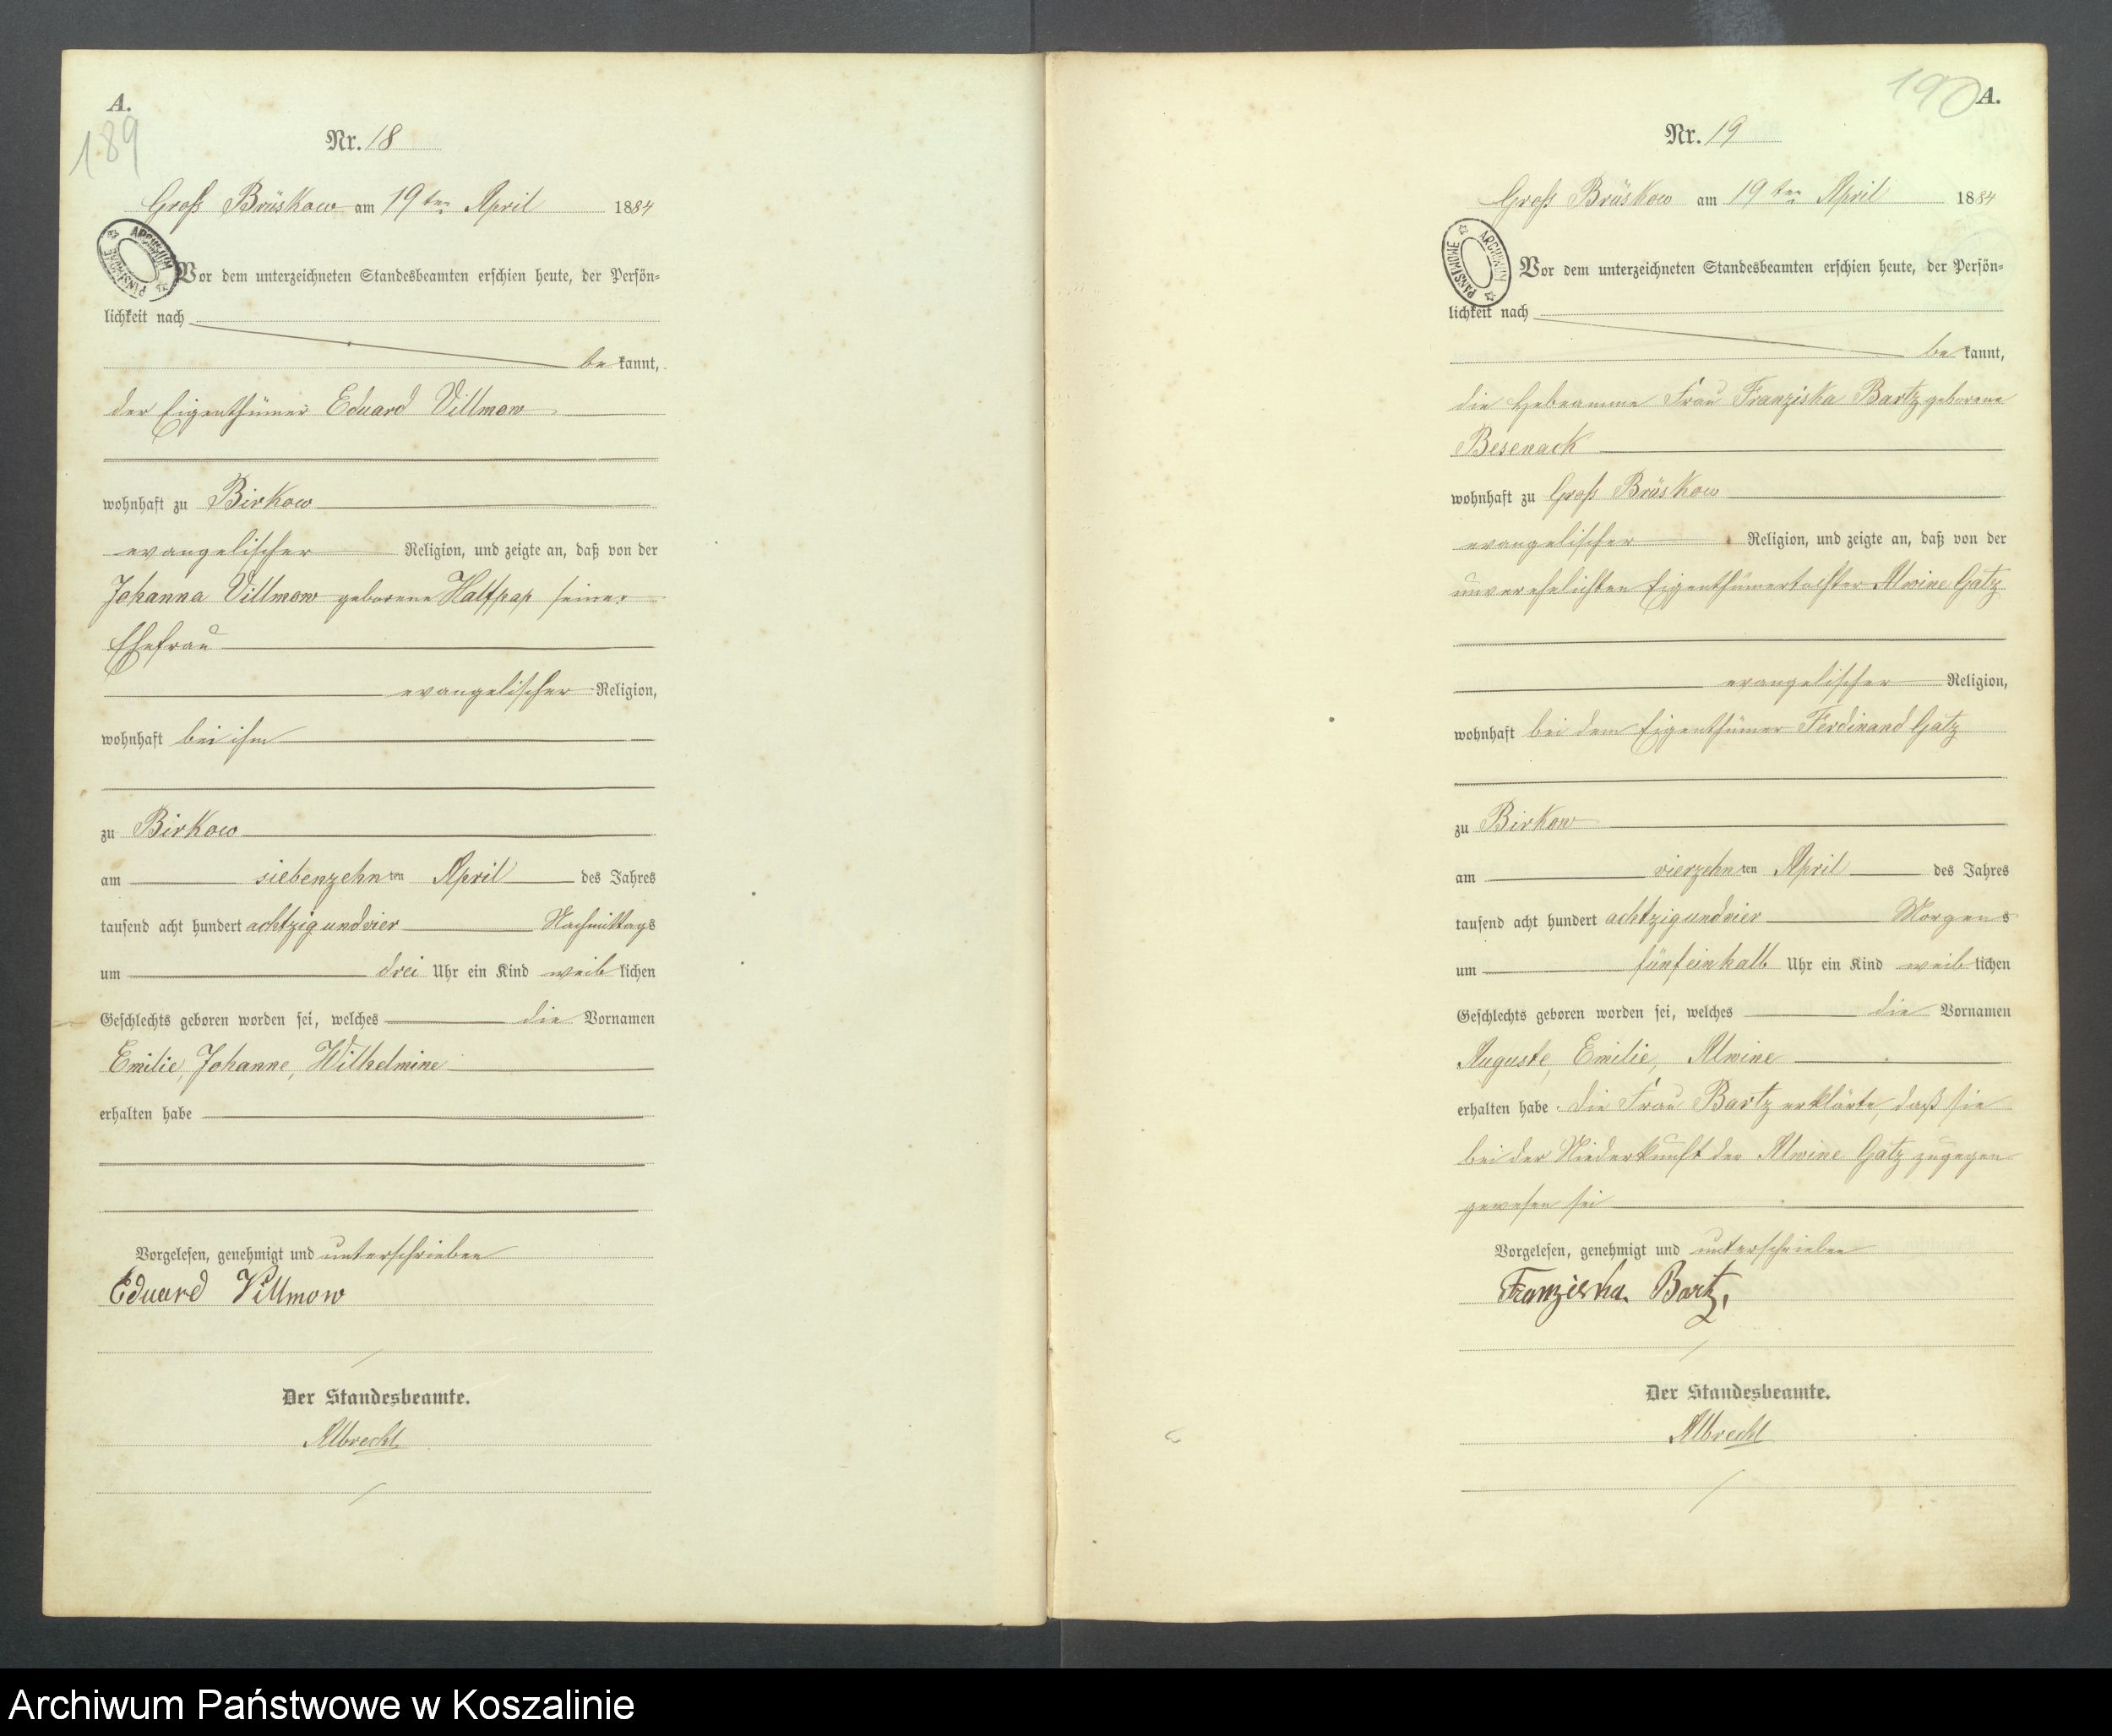 A.
189
Nr. 18
Groß Brüskow am 19ten April 1884
ARCHIWUM PAŃSTWOWE
Vor dem unterzeichneten Standesbeamten erschien heute, der Persön-
lichkeit nach
be kannt,
der Eigenthümer Eduard Villmow
wohnhaft zu Birkow
evangelischer Religion, und zeigte an, daß von der
Johanna Villmow geborene Halfpap seiner
Ehefrau
evangelischer Religion,
wohnhaft bei ihm
zu Birkow
am siebenzehnten April des Jahres
tausend acht hundert achtzigundvier Nachmittags
um drei Uhr ein Kind weiblichen
Geschlechts geboren worden sei, welches die Vornamen
Emilie, Johanne, Wilhelmine
erhalten habe
Vorgelesen, genehmigt und unterschrieben
Eduard Villmow
Der Standesbeamte.
Albrecht
190 A.
Nr. 19
Groß Brüskow am 19ten April 1884
ARCHIWUM PAŃSTWOWE
Vor dem unterzeichneten Standesbeamten erschien heute, der Persön-
lichkeit nach
be kannt,
die Hebeamme Frau Franziska Bartz geborene
Besenack
wohnhaft zu Groß Brüskow
evangelischer Religion, und zeigte an, daß von der
unverehelichten Eigenthümertochter Alwine Gatz
evangelischer Religion,
wohnhaft bei dem Eigenthümer Ferdinand Gatz
zu Birkow
am vierzehnten April des Jahres
tausend acht hundert achtzigundvier Morgens
um fünfeinhalb Uhr ein Kind weiblichen
Geschlechts geboren worden sei, welches die Vornamen
Auguste, Emilie, Alwine
erhalten habe. Die Frau Bartz erklärte, daß sie
bei der Niederkunft der Alwine Gatz zugegen
gewesen sei
Vorgelesen, genehmigt und unterschrieben
Franziska Bartz,
Der Standesbeamte.
Albrecht
Archiwum Państwowe w Koszalinie